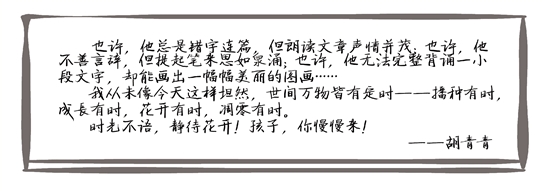 也许，他总是错字连篇，但朗读文章声情并茂；也许，他
不善言辞，但提起笔来思如泉涌；也许，他无法完整背诵一小
段文字，却能画出一幅幅美丽的图画……
我从未像今天这样坦然，世间万物皆有定时——播种有时，
成长有时，花开有时，凋零有时。
时光不语，静待花开！孩子，你慢慢来！
——胡青青